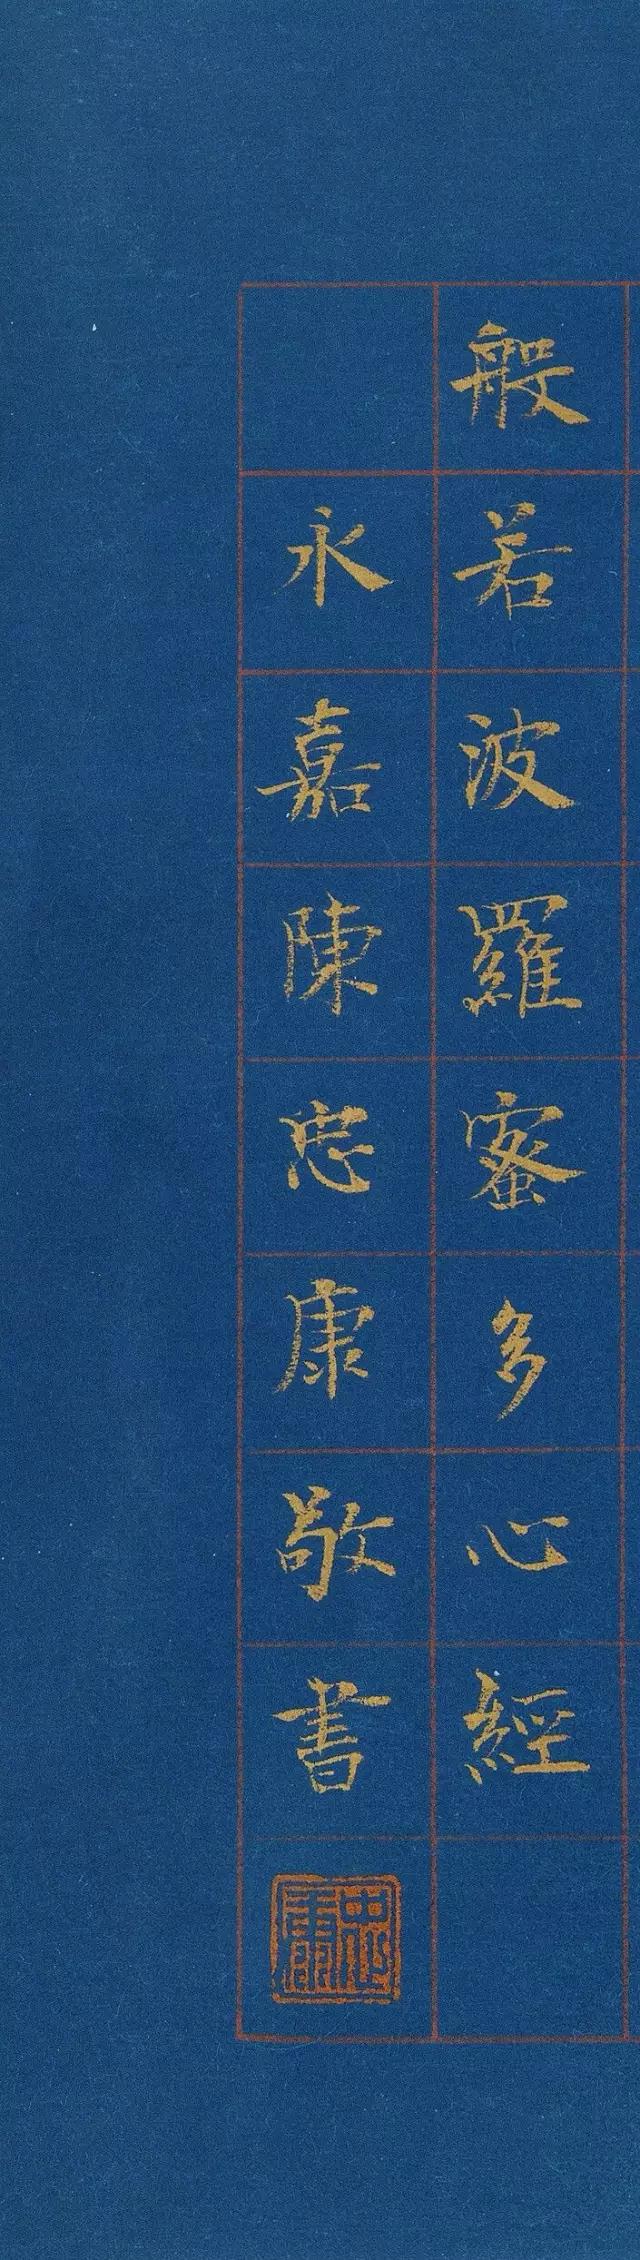 般若波羅蜜多心經
永嘉陳忠康敬書
忠康